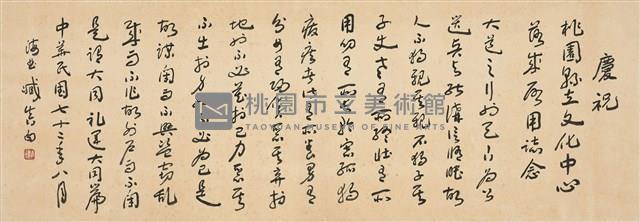 慶祝
桃園縣立文化中心
落成啟用誌念
大道之行也天下為公
選賢與能講信修睦故
人不獨親其親不獨子其
子使老有所終壯有所
用幼有所長矜寡孤獨
廢疾者皆有所養男有
分女有歸貨惡其棄於
地也不必藏於己力惡其
不出於身也不必為己是
故謀閉而不興盜竊亂
賊而不作故外戶而不閉
是謂大同 禮運大同篇
中華民國七十二年八月
桃園市立美術館
TAOYUAN MUSEUM OF FINE ARTS